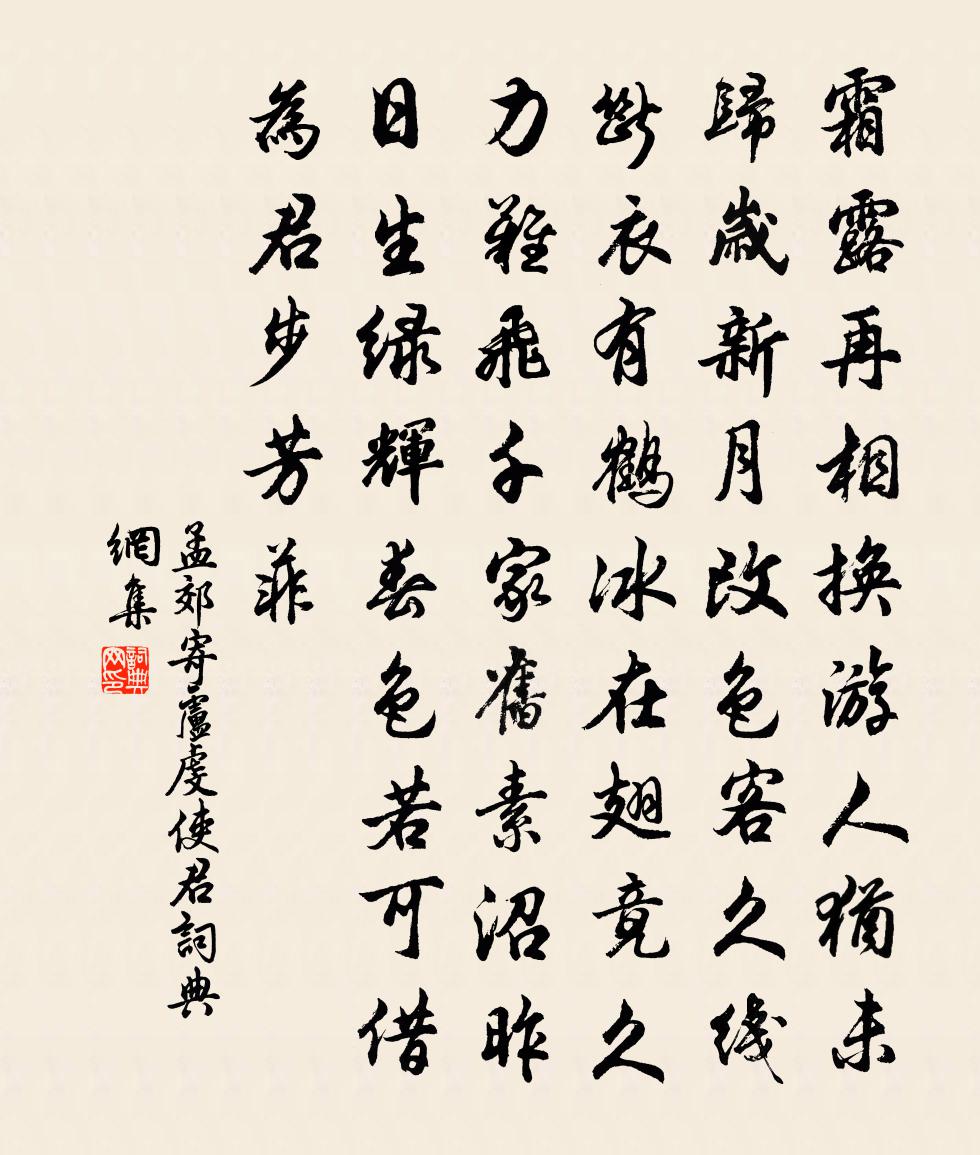 霜露再相換游人猶未
歸歲新月改色客久綫
斷衣有鶴冰在翅竟久
力難飛千家舊素沼昨
日生緑輝春色若可借
為君步芳菲
孟郊寄盧虔使君詞典
網集
詞典網印